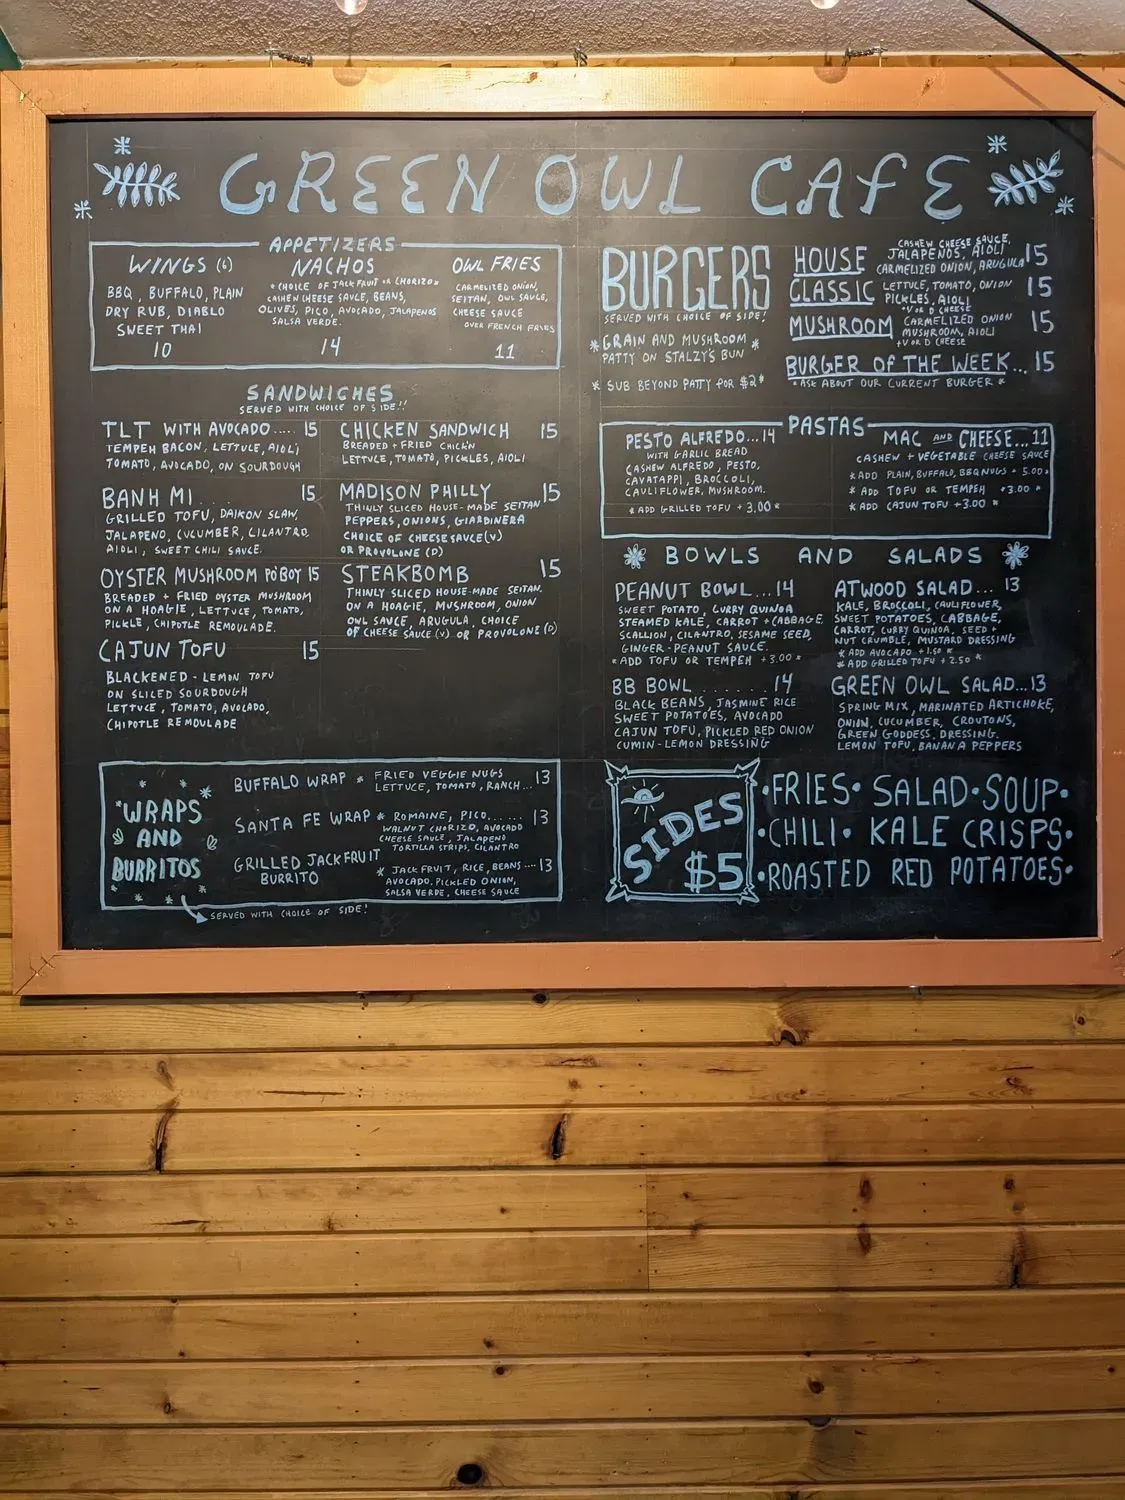 GREEN OWL CAFE
APPETIZERS
WINGS (6)
BBQ, BUFFALO, PLAIN
DRY RUB, DIABLO
SWEET THAI
10
NACHOS
* CHOICE OF JACKFRUIT OR CHORIZO *
CASHEW CHEESE SAUCE, BEANS,
OLIVES, PICO, AVOCADO, JALAPENOS
SALSA VERDE.
14
OWL FRIES
CARMELIZED ONION,
SEITAN, OWL SAUCE,
CHEESE SAUCE
OVER FRENCH FRIES
11
SANDWICHES
SERVED WITH CHOICE OF SIDE!!
TLT WITH AVOCADO.... 15
TEMPEH BACON, LETTUCE, AIOLI
TOMATO, AVOCADO, ON SOURDOUGH
BANH MI ... 15
GRILLED TOFU, DAIKON SLAW,
JALAPENO, CUCUMBER, CILANTRO,
AIOLI, SWEET CHILI SAUCE.
OYSTER MUSHROOM PO'BOY 15
BREADED + FRIED OYSTER MUSHROOM
ON A HOAGIE, LETTUCE, TOMATO,
PICKLE, CHIPOTLE REMOULADE.
CAJUN TOFU 15
BLACKENED - LEMON TOFU
ON SLICED SOURDOUGH
LETTUCE, TOMATO, AVOCADO,
CHIPOTLE REMOULADE
CHICKEN SANDWICH 15
BREADED + FRIED CHICK'N
LETTUCE, TOMATO, PICKLES, AIOLI
MADISON PHILLY 15
THINLY SLICED HOUSE-MADE SEITAN
PEPPERS, ONIONS, GIARDINERA
CHOICE OF CHEESE SAUCE (V)
OR PROVOLONE (D)
STEAKBOMB 15
THINLY SLICED HOUSE-MADE SEITAN.
ON A HOAGIE, MUSHROOM, ONION
OWL SAUCE, ARUGULA, CHOICE
OF CHEESE SAUCE (V) OR PROVOLONE (D)
WRAPS
AND
BURRITOS
BUFFALO WRAP * FRIED VEGGIE NUGS
LETTUCE, TOMATO, RANCH... 13
SANTA FE WRAP * ROMAINE, PICO...... 13
WALNUT CHORIZO, AVOCADO
CHEESE SAUCE, JALAPENO
TORTILLA STRIPS, CILANTRO
GRILLED JACKFRUIT
BURRITO
* JACKFRUIT, RICE, BEANS .... 13
AVOCADO, PICKLED ONION,
SALSA VERDE, CHEESE SAUCE
SERVED WITH CHOICE OF SIDE!
BURGERS
SERVED WITH CHOICE OF SIDE!
* GRAIN AND MUSHROOM *
PATTY ON STALZY'S BUN
* SUB BEYOND PATTY FOR $2 *
HOUSE
CASHEW CHEESE SAUCE,
JALAPENOS, AIOLI
CARMELIZED ONION, ARUGULA 15
CLASSIC
LETTUCE, TOMATO, ONION
PICKLES, AIOLI 15
+V OR D CHEESE
MUSHROOM
CARMELIZED ONION
MUSHROOM, AIOLI 15
+V OR D CHEESE
BURGER OF THE WEEK... 15
* ASK ABOUT OUR CURRENT BURGER *
PASTAS
PESTO ALFREDO...14
WITH GARLIC BREAD
CASHEW ALFREDO, PESTO,
CAVATAPPI, BROCCOLI,
CAULIFLOWER, MUSHROOM.
* ADD GRILLED TOFU + 3.00 *
MAC AND CHEESE...11
CASHEW + VEGETABLE CHEESE SAUCE
* ADD PLAIN, BUFFALO, BBQ NUGS + 5.00 *
* ADD TOFU OR TEMPEH +3.00 *
* ADD CAJUN TOFU +3.00 *
BOWLS AND SALADS
PEANUT BOWL...14
SWEET POTATO, CURRY QUINOA
STEAMED KALE, CARROT + CABBAGE
SCALLION, CILANTRO, SESAME SEED,
GINGER-PEANUT SAUCE.
* ADD TOFU OR TEMPEH +3.00 *
BB BOWL .......14
BLACK BEANS, JASMINE RICE
SWEET POTATOES, AVOCADO
CAJUN TOFU, PICKLED RED ONION
CUMIN-LEMON DRESSING
ATWOOD SALAD... 13
KALE, BROCCOLI, CAULIFLOWER,
SWEET POTATOES, CABBAGE,
CARROT, CURRY QUINOA, SEED +
NUT CRUMBLE, MUSTARD DRESSING
* ADD AVOCADO +1.50 *
* ADD GRILLED TOFU + 2.50 *
GREEN OWL SALAD...13
SPRING MIX, MARINATED ARTICHOKE,
ONION, CUCUMBER, CROUTONS,
GREEN GODDESS, DRESSING.
LEMON TOFU, BANANA PEPPERS
SIDES
$5
•FRIES• SALAD•SOUP•
•CHILI• KALE CRISPS•
•ROASTED RED POTATOES•